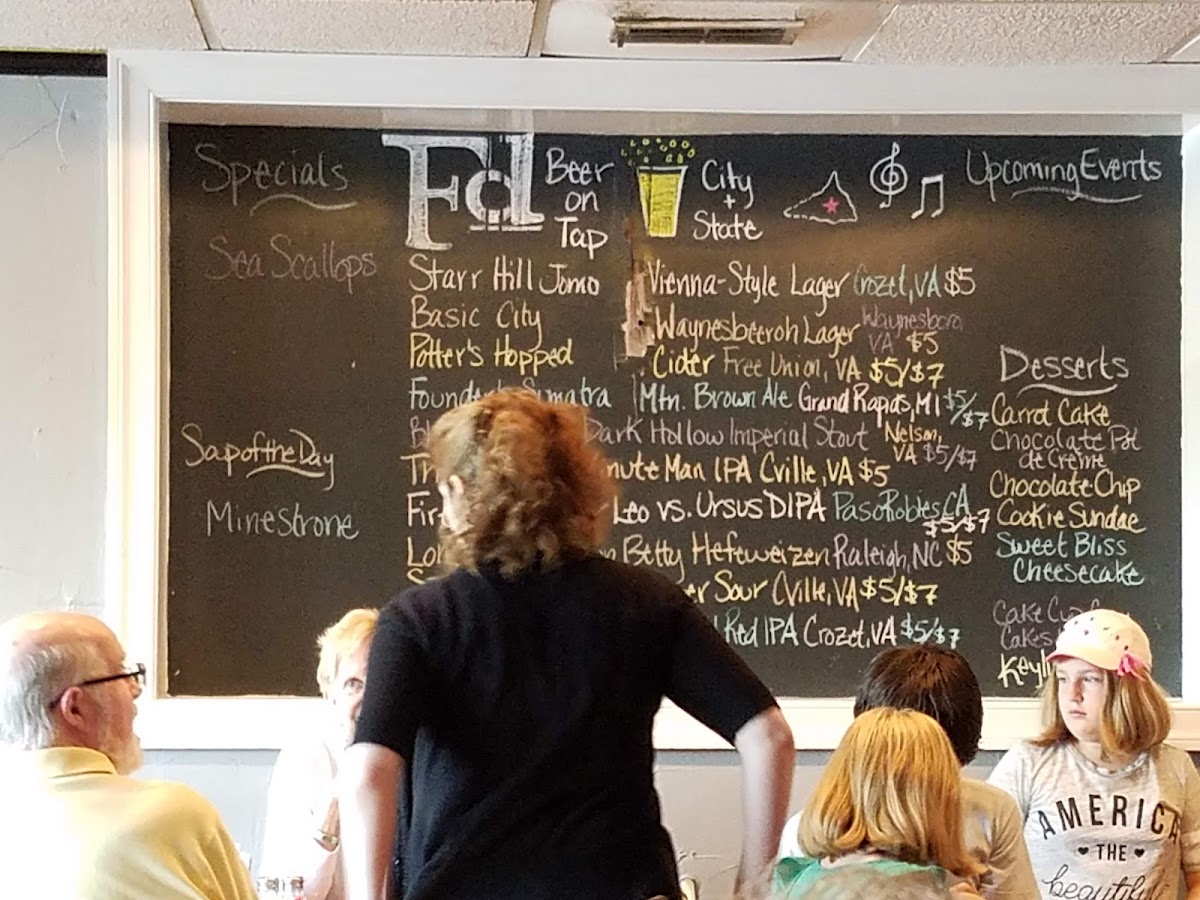 Specials
Sea Scallops
Soup of the Day
Minestrone
Fd
Beer
on
Tap
City
+
State
Starr Hill Jomo Vienna-Style Lager Crozet, VA $5
Basic City Waynesbeeroh Lager Waynesboro VA $5
Potter's Hopped Cider Free Union, VA $5/$7
Mtn. Brown Ale Grand Rapids, MI $5/$7
Dark Hollow Imperial Stout Nelson, VA $5/$7
Man IPA Cville, VA $5
Leo vs. Ursus DIPA Paso Robles, CA $5/$7
Betty Hefeweizen Raleigh, NC $5
Sour Cville, VA $5/$7
Red IPA Crozet, VA $5/$7
Upcoming Events
Desserts
Carrot Cake
Chocolate Pot
de Creme
Chocolate Chip
Cookie Sundae
Sweet Bliss
Cheesecake
Cake
Cakes
AMERICA
THE
beautiful